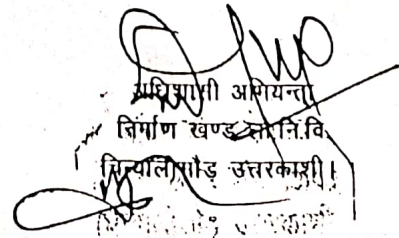 अधिशासी अभियन्ता
निर्माण खण्ड लो.नि.वि.
चिन्यालीसौड़ उत्तरकाशी।